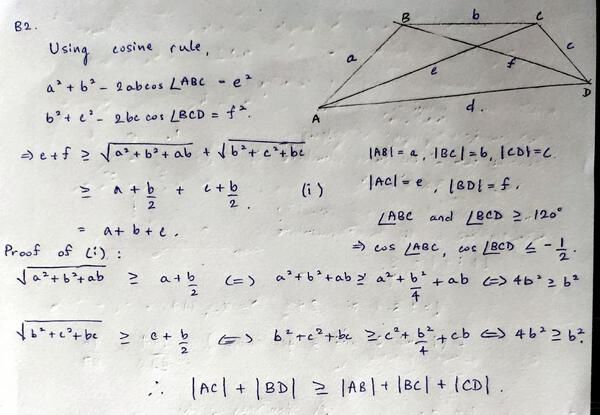 B2.
Using cosine rule,
a² + b² - 2ab cos ∠ABC = e²
b² + c² - 2bc cos ∠BCD = f².
⇒ e+f ≥ √(a²+b²+ab) + √(b²+c²+bc)
≥ a + b/2 + c + b/2 (i)
= a + b + c.
B
b
C
a
e
f
c
A
d.
D
|AB| = a, |BC| = b, |CD| = c
|AC| = e, |BD| = f.
∠ABC and ∠BCD ≥ 120°
⇒ cos ∠ABC, cos ∠BCD ≤ -1/2.
Proof of (i) :
√(a²+b²+ab) ≥ a + b/2 (=) a²+b²+ab ≥ a² + b²/4 + ab ⇔ 4b² ≥ b²
√(b²+c²+bc) ≥ c + b/2 ⇔ b²+c²+bc ≥ c² + b²/4 + cb ⇔ 4b² ≥ b².
∴ |AC| + |BD| ≥ |AB| + |BC| + |CD|.